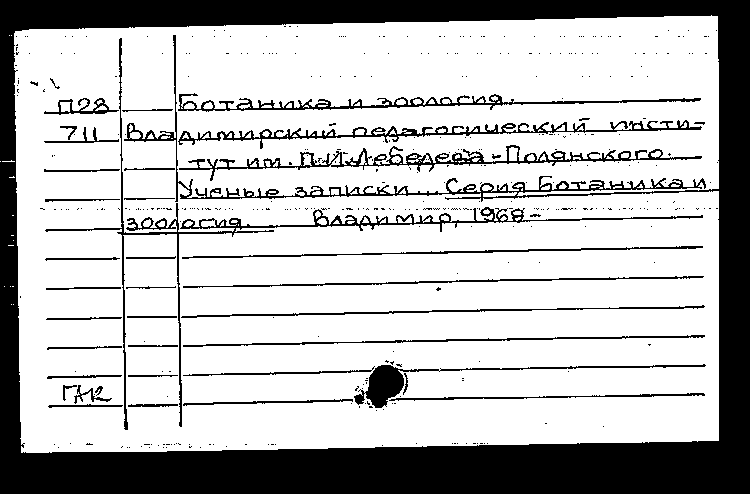 П28 Ботаника и зоология.
711 Владимирский педагогический инсти-
тут им. П.И.Лебедева-Полянского.
Ученые записки... Серия Ботаника и
зоология. Владимир, 1968-
ГАК